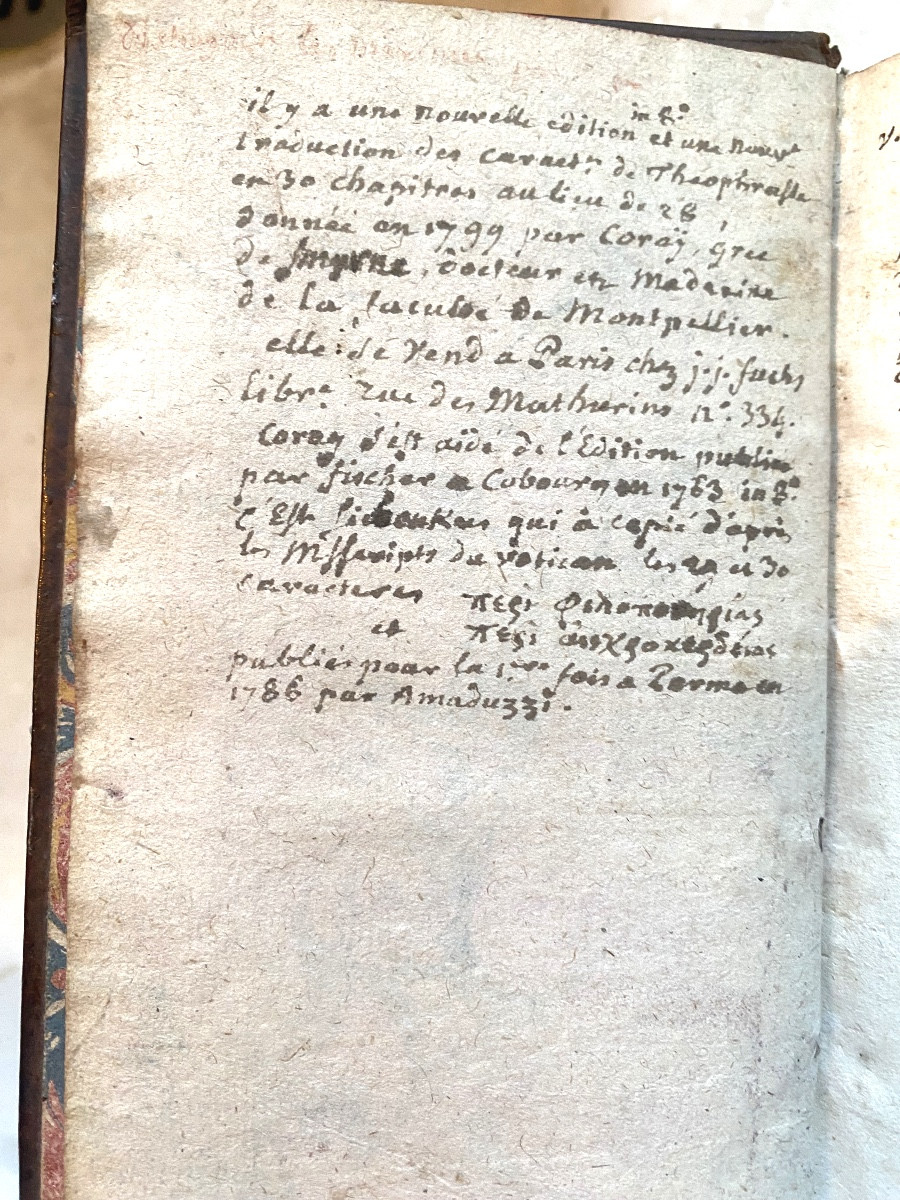 in 8°
il y a une nouvelle edition et une nouv.e
traduction des caract.rs de Theophraste
en 30 chapitres au lieu de 28,
donnée en 1799 par Coraÿ, Grec
de Smyrne, docteur en Medecine
de la faculté de Montpellier.
elle se vend à Paris chez j. j. fuchs
libr.e rue des Mathurins n°. 334.
Coray s'est aidé de l'Edition publiée
par fischer a Cobourg en 1763 in 8°
C'Est siebenkees qui à copié d'après
les Mssscripts du vatican les 29 et 30
caracteres περι φιλοπονηρίας
et περι αισχροκερδείας
publiés pour la 1.ere fois a Parme en
1786 par Amaduzzi.